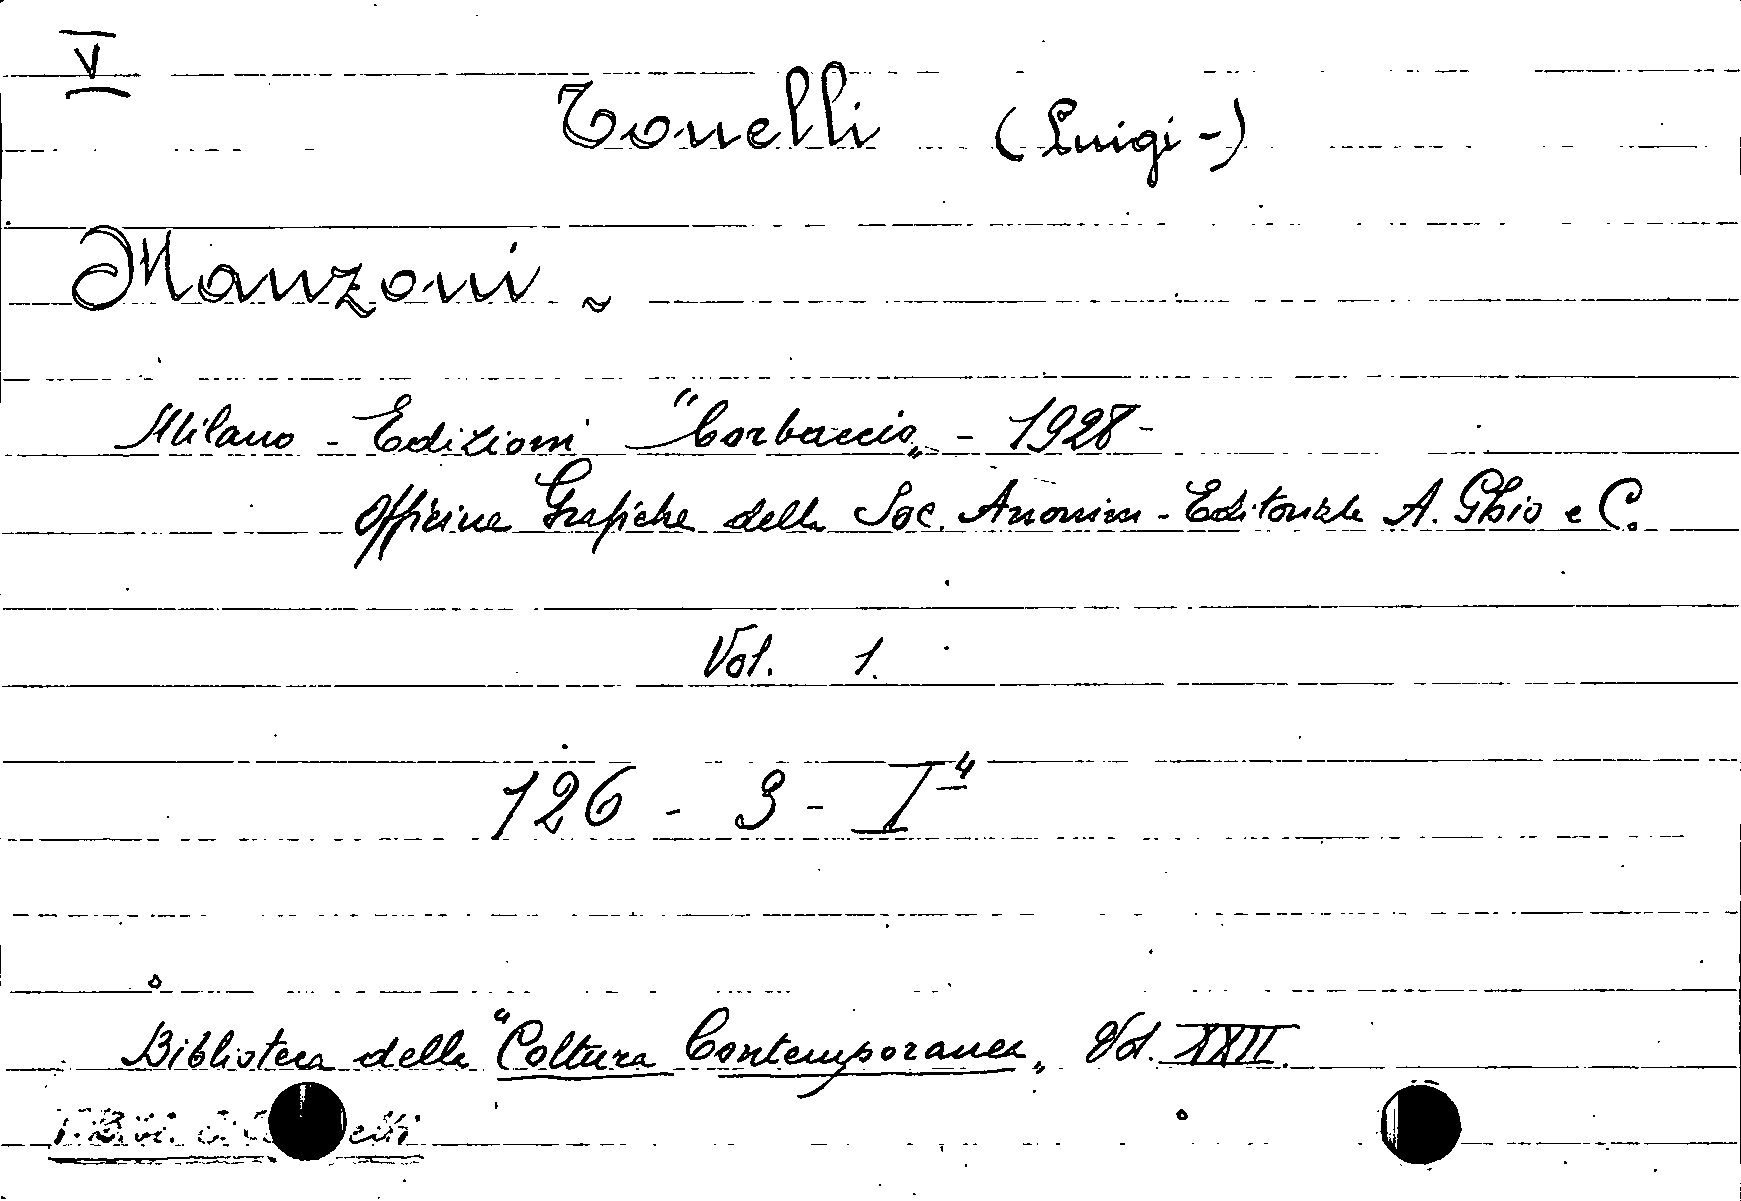 V
Tonelli (Luigi-)
Manzoni -
Milano - Edizioni "Corbaccio„ - 1928 -
Officine Grafiche della Soc. Anonim - Editoriale A. Ghio e C.
Vol. 1.
126 - 3 - I 4
Biblioteca della "Coltura Contemporanea„ Vol. XXII.